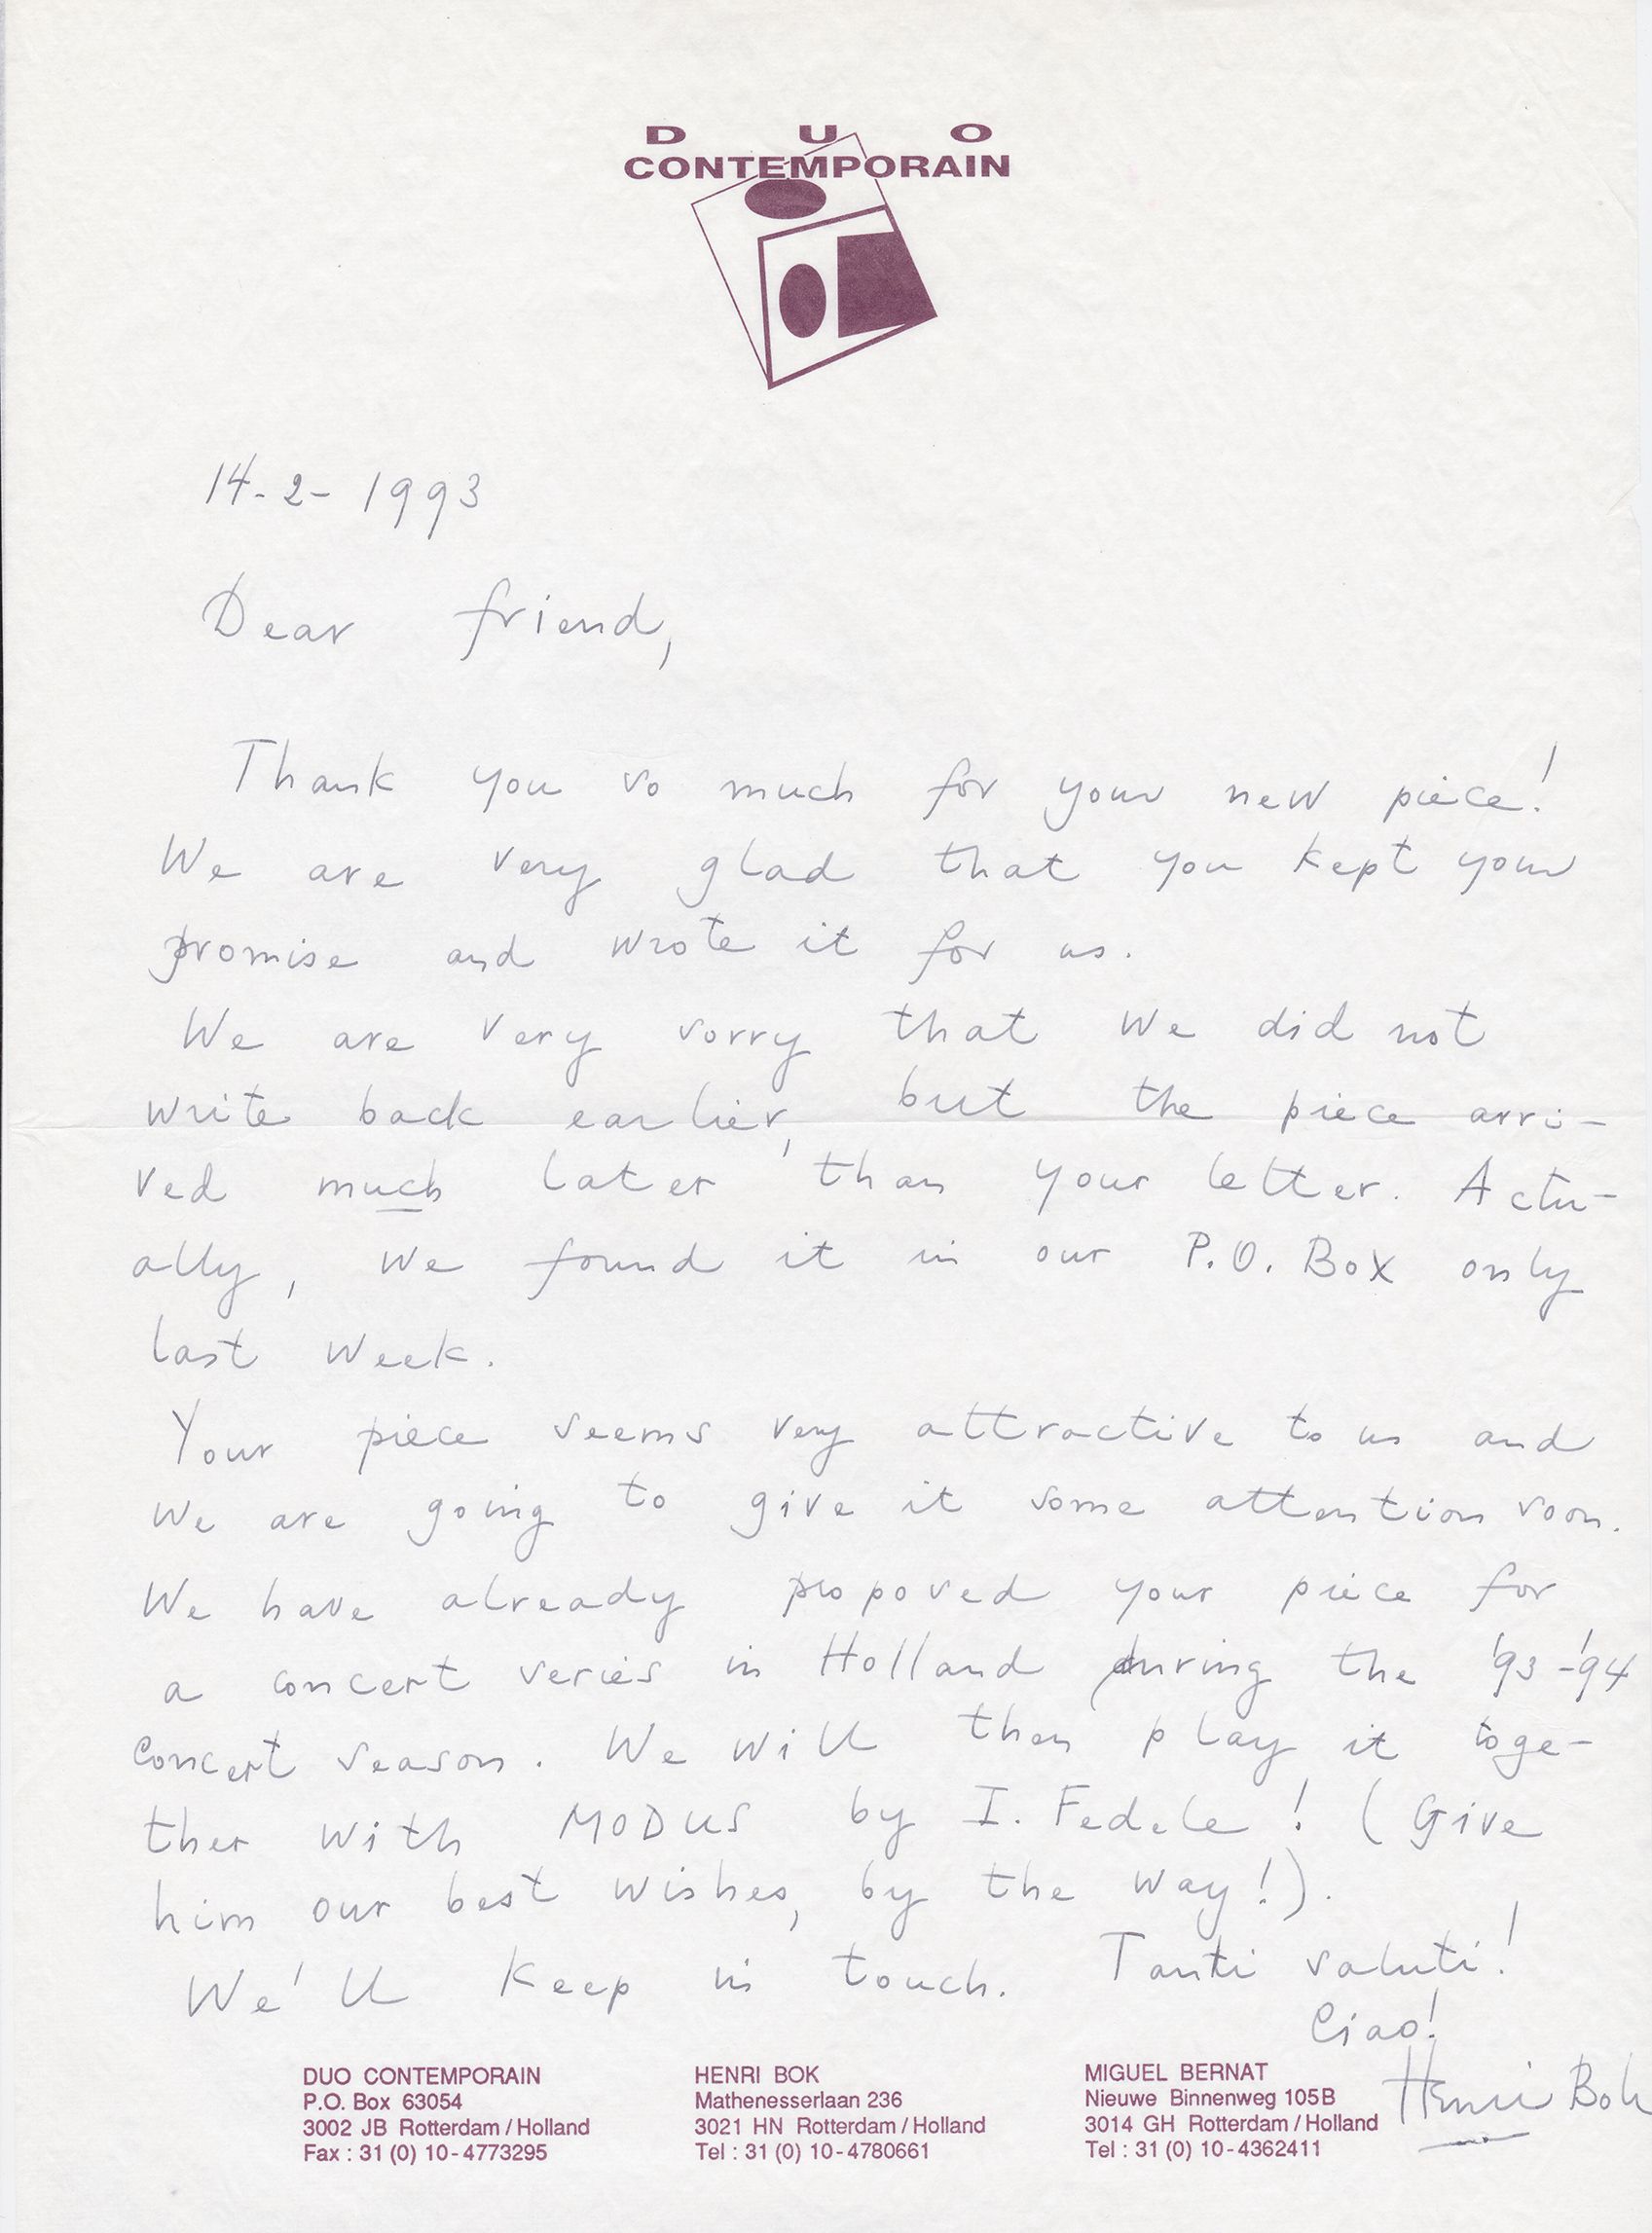 D U O
CONTEMPORAIN
14-2-1993
Dear friend,
Thank you so much for your new piece!
We are very glad that you kept your
promise and wrote it for us.
We are very sorry that we did not
write back earlier, but the piece arri-
ved much later than your letter. Actu-
ally, we found it in our P.O. Box only
last week.
Your piece seems very attractive to us and
we are going to give it some attention soon.
We have already proposed your piece for
a concert series in Holland during the '93-'94
concert season. We will then play it toge-
ther with MODUS by I. Fedele! (Give
him our best wishes, by the way!).
We'll keep in touch. Tanti saluti!
Ciao!
Henri Bok
DUO CONTEMPORAIN
P.O. Box 63054
3002 JB Rotterdam / Holland
Fax : 31 (0) 10-4773295
HENRI BOK
Mathenesserlaan 236
3021 HN Rotterdam / Holland
Tel : 31 (0) 10-4780661
MIGUEL BERNAT
Nieuwe Binnenweg 105B
3014 GH Rotterdam / Holland
Tel : 31 (0) 10-4362411